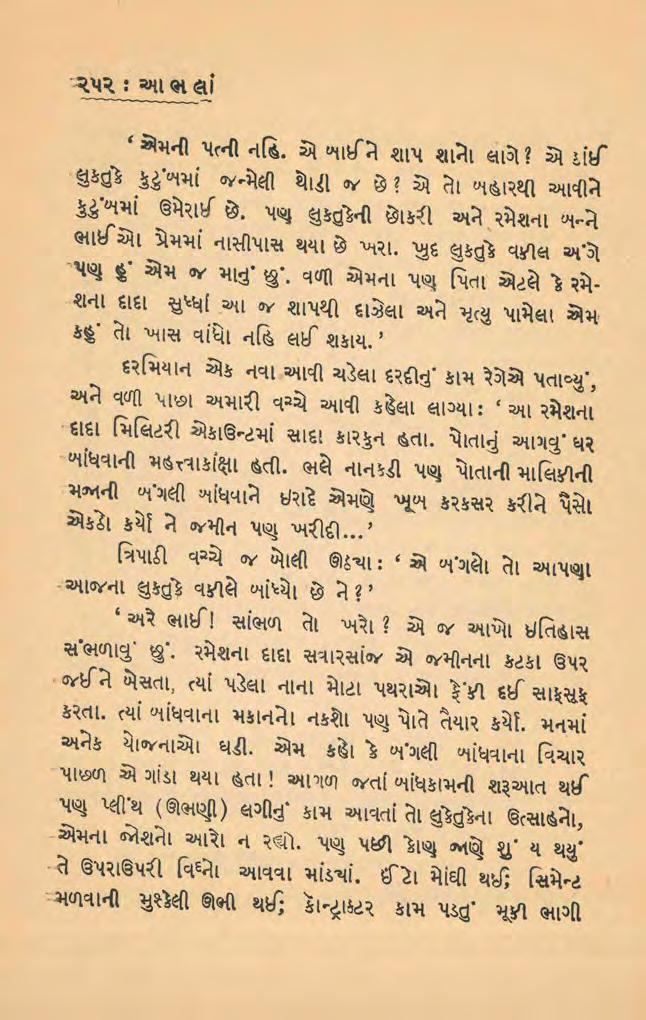 ૨૫૨ : આ ભ લાં
‘ એમની પત્ની નહિ. એ બાઈને શાપ શાનો લાગે ? એ કાંઈ
લુકતુકે કુટુંબમાં જન્મેલી થોડી જ છે ? એ તો બહારથી આવીને
કુટુંબમાં ઉમેરાઈ છે. પણ લુકતુકેની છોકરી અને રમેશના બન્ને
ભાઈઓ પ્રેમમાં નાસીપાસ થયા છે ખરા. ખુદ લુકતુકે વકીલ અંગે
પણ હું એમ જ માનું છું. વળી એમના પણ પિતા એટલે કે રમે-
શના દાદા સુધ્ધાં આ જ શાપથી દાઝેલા અને મૃત્યુ પામેલા એમ
કહું તો ખાસ વાંધો નહિ લઈ શકાય. ’
દરમિયાન એક નવા આવી ચડેલા દરદીનું કામ રેગેએ પતાવ્યું,
અને વળી પાછા અમારી વચ્ચે આવી કહેલા લાગ્યા : ‘ આ રમેશના
દાદા મિલિટરી એકાઉન્ટમાં સાદા કારકુન હતા. પોતાનું આગવું ઘર
બાંધવાની મહત્ત્વાકાંક્ષા હતી. ભલે નાનકડી પણ પોતાની માલિકીની
મજાની બંગલી બાંધવાને ઇરાદે એમણે ખૂબ કરકસર કરીને પૈસો
એકઠો કર્યો ને જમીન પણ ખરીદી... ’
ત્રિપાઠી વચ્ચે જ બોલી ઊઠ્યા : ‘ એ બંગલો તો આપણા
આજના લુકતુકે વકીલે બાંધ્યો છે ને ? ’
‘ અરે ભાઈ ! સાંભળ તો ખરો ? એ જ આખો ઇતિહાસ
સંભળાવું છું. રમેશના દાદા સવારસાંજ એ જમીનના કટકા ઉપર
જઈને બેસતા, ત્યાં પડેલા નાના મોટા પથરાઓ ફેંકી દઈ સાફસૂફ
કરતા. ત્યાં બાંધવાના મકાનનો નકશો પણ પોતે તૈયાર કર્યો. મનમાં
અનેક યોજનાઓ ઘડી. એમ કહો કે બંગલી બાંધવાના વિચાર
પાછળ એ ગાંડા થયા હતા ! આગળ જતાં બાંધકામની શરૂઆત થઈ
પણ પ્લીંથ ( ઊભણી ) લગીનું કામ આવતાં તો લુકેતુકેના ઉત્સાહનો,
એમના જોશનો આરો ન રહ્યો. પણ પછી કોણ જાણે શું ય થયું
તે ઉપરાઉપરી વિઘ્નો આવવા માંડ્યાં. ઈંટો મોંઘી થઈ; સિમેન્ટ
મળવાની મુશ્કેલી ઊભી થઈ; કૉન્ટ્રાક્ટર કામ પડતું મૂકી ભાગી